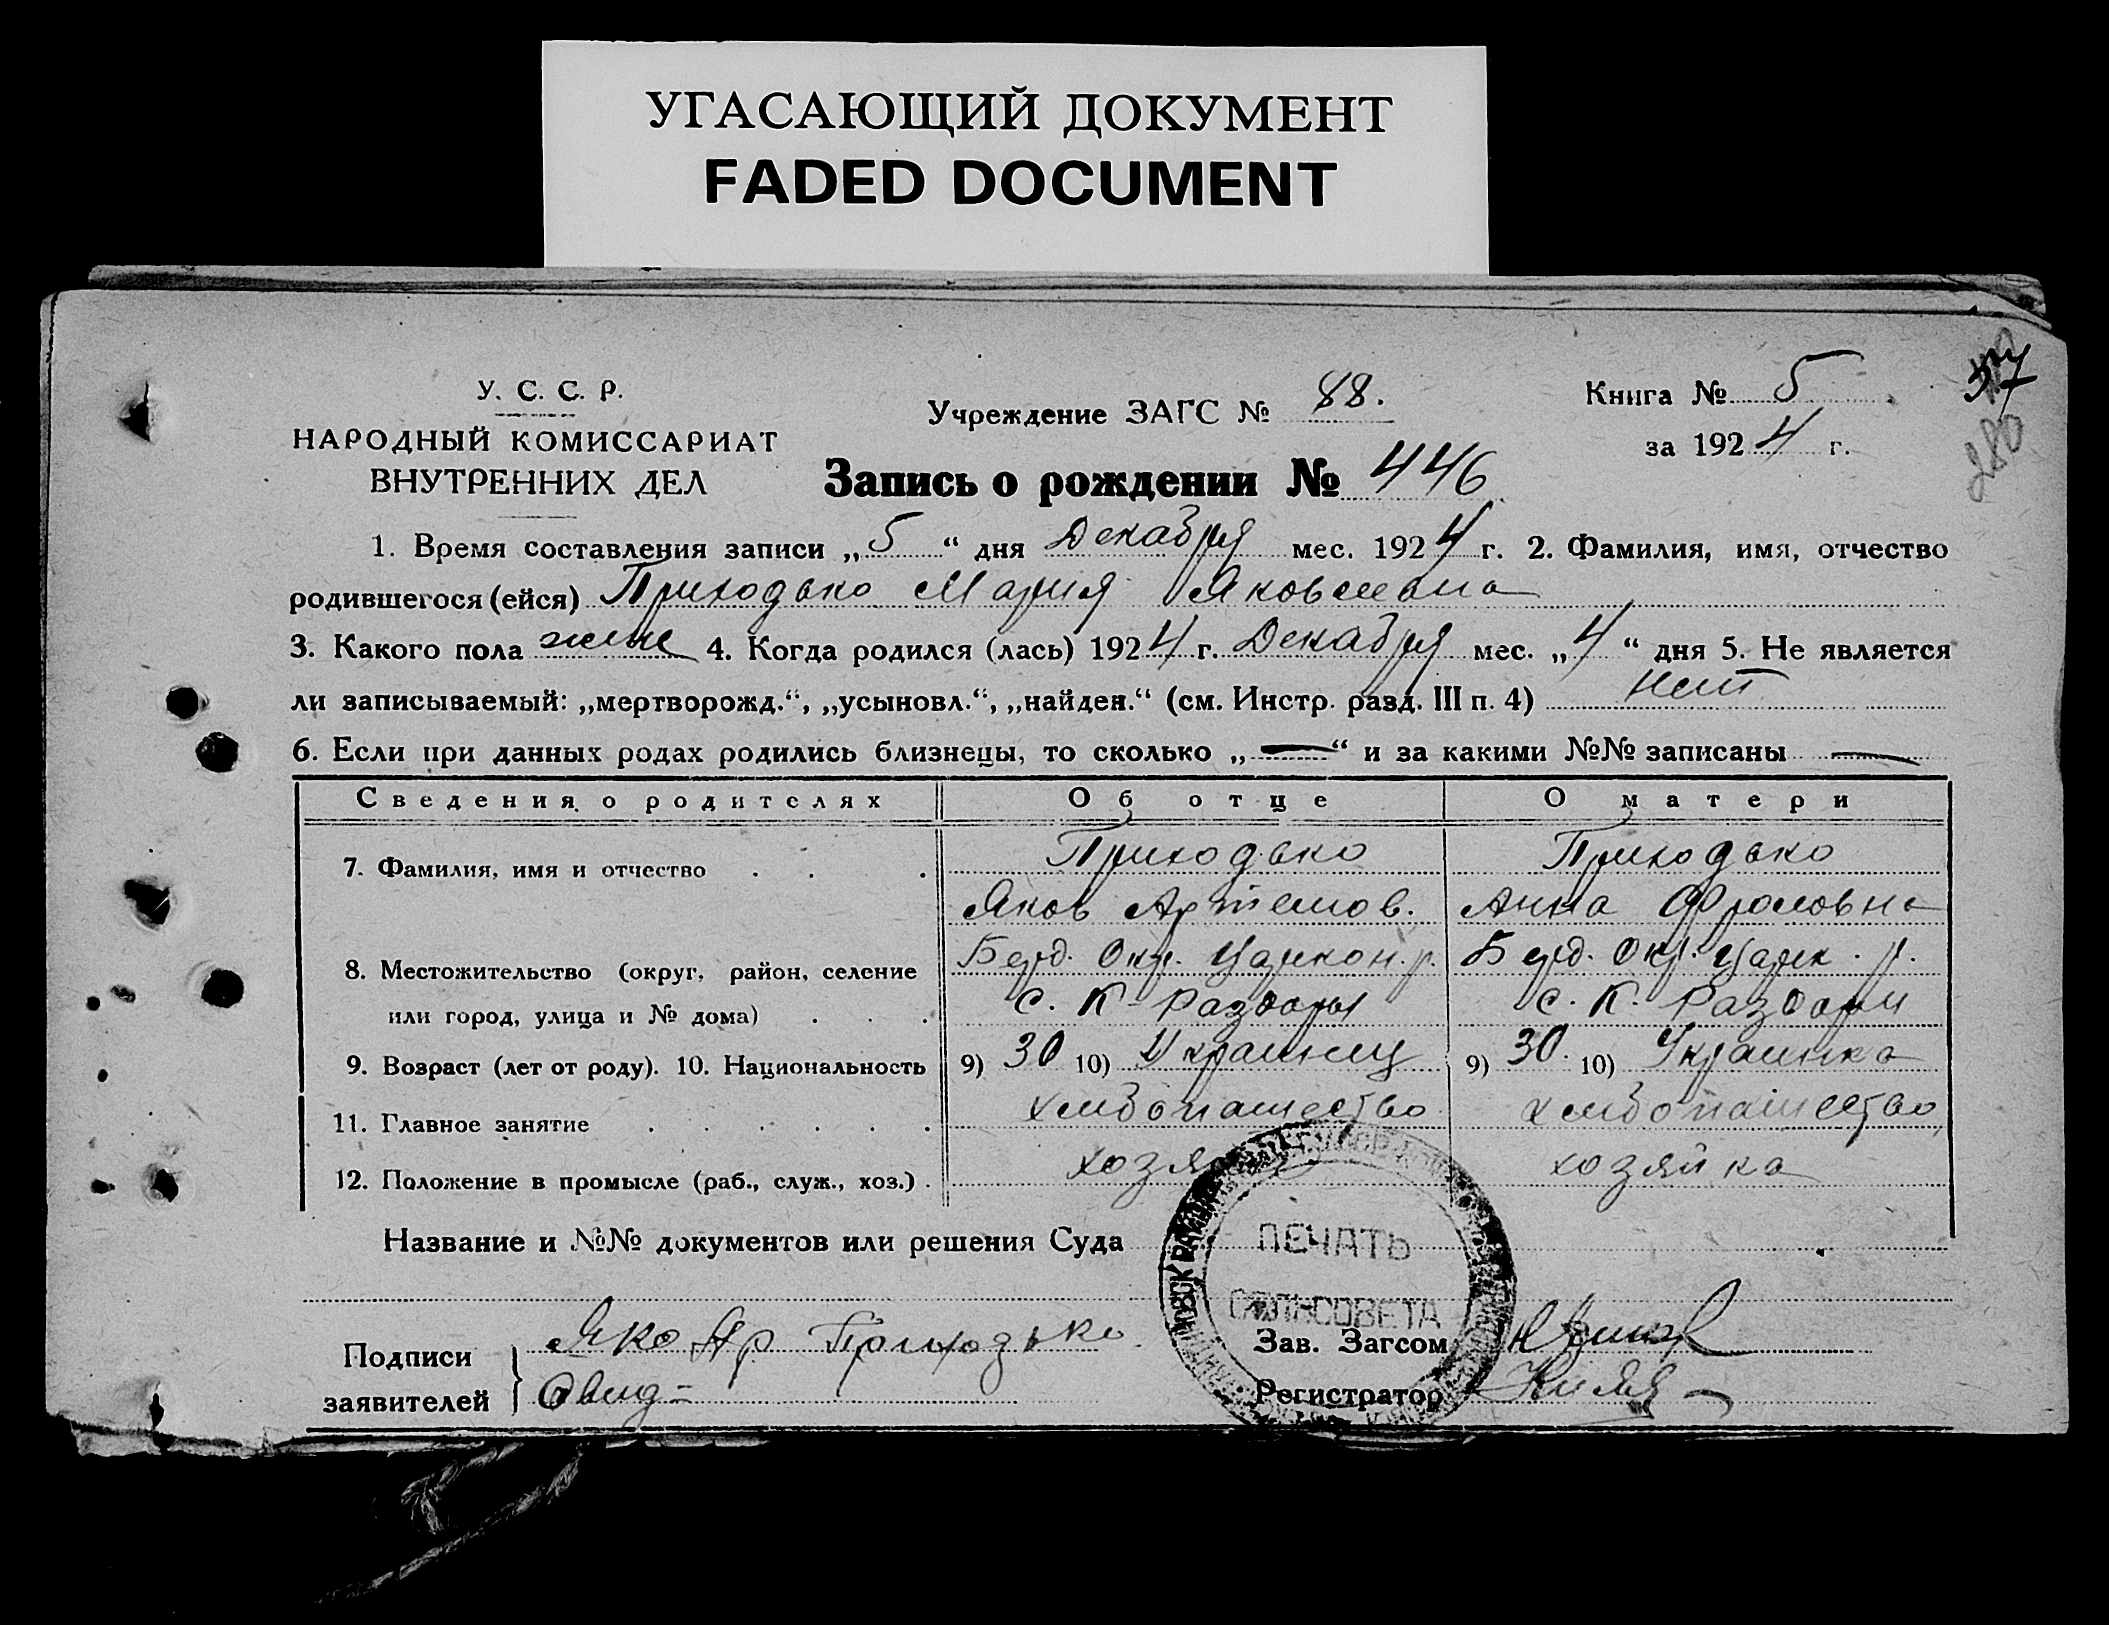 УГАСАЮЩИЙ ДОКУМЕНТ
FADED DOCUMENT
У. С. С. Р.
НАРОДНЫЙ КОМИССАРИАТ
ВНУТРЕННИХ ДЕЛ
Учреждение ЗАГС № 88.
Книга № 5
за 1924 г.
57
280
Запись о рождении № 446
1. Время составления записи „5“ дня Декабря мес. 1924 г. 2. Фамилия, имя, отчество
родившегося (ейся) Приходько Мария Яковлевна
3. Какого пола жене 4. Когда родился (лась) 1924 г. Декабря мес. „4“ дня 5. Не является
ли записываемый: „мертворожд.“, „усыновл.“, „найден.“ (см. Инстр. разд. III п. 4) нет
6. Если при данных родах родились близнецы, то сколько „—“ и за какими №№ записаны —
Сведения о родителях Об отце О матери
7. Фамилия, имя и отчество Приходько Приходько
Яков Артемов. Анна Фроловна
8. Местожительство (округ, район, селение Берд. Окр. Царекон. р. Берд. Окр. Царек. р.
или город, улица и № дома) с. К-Раздоры с. К. Раздори
9. Возраст (лет от роду). 10. Национальность 9) 30 10) Украинец 9) 30. 10) Украинка
11. Главное занятие хлебопашество хлебопашество
12. Положение в промысле (раб., служ., хоз.) хозяин хозяйка
Название и №№ документов или решения Суда
ПЕЧАТЬ
СІЛЬСОВЕТА
Подписи
заявителей
Яко Ар Приходько
Зав. Загсом
Регистратор